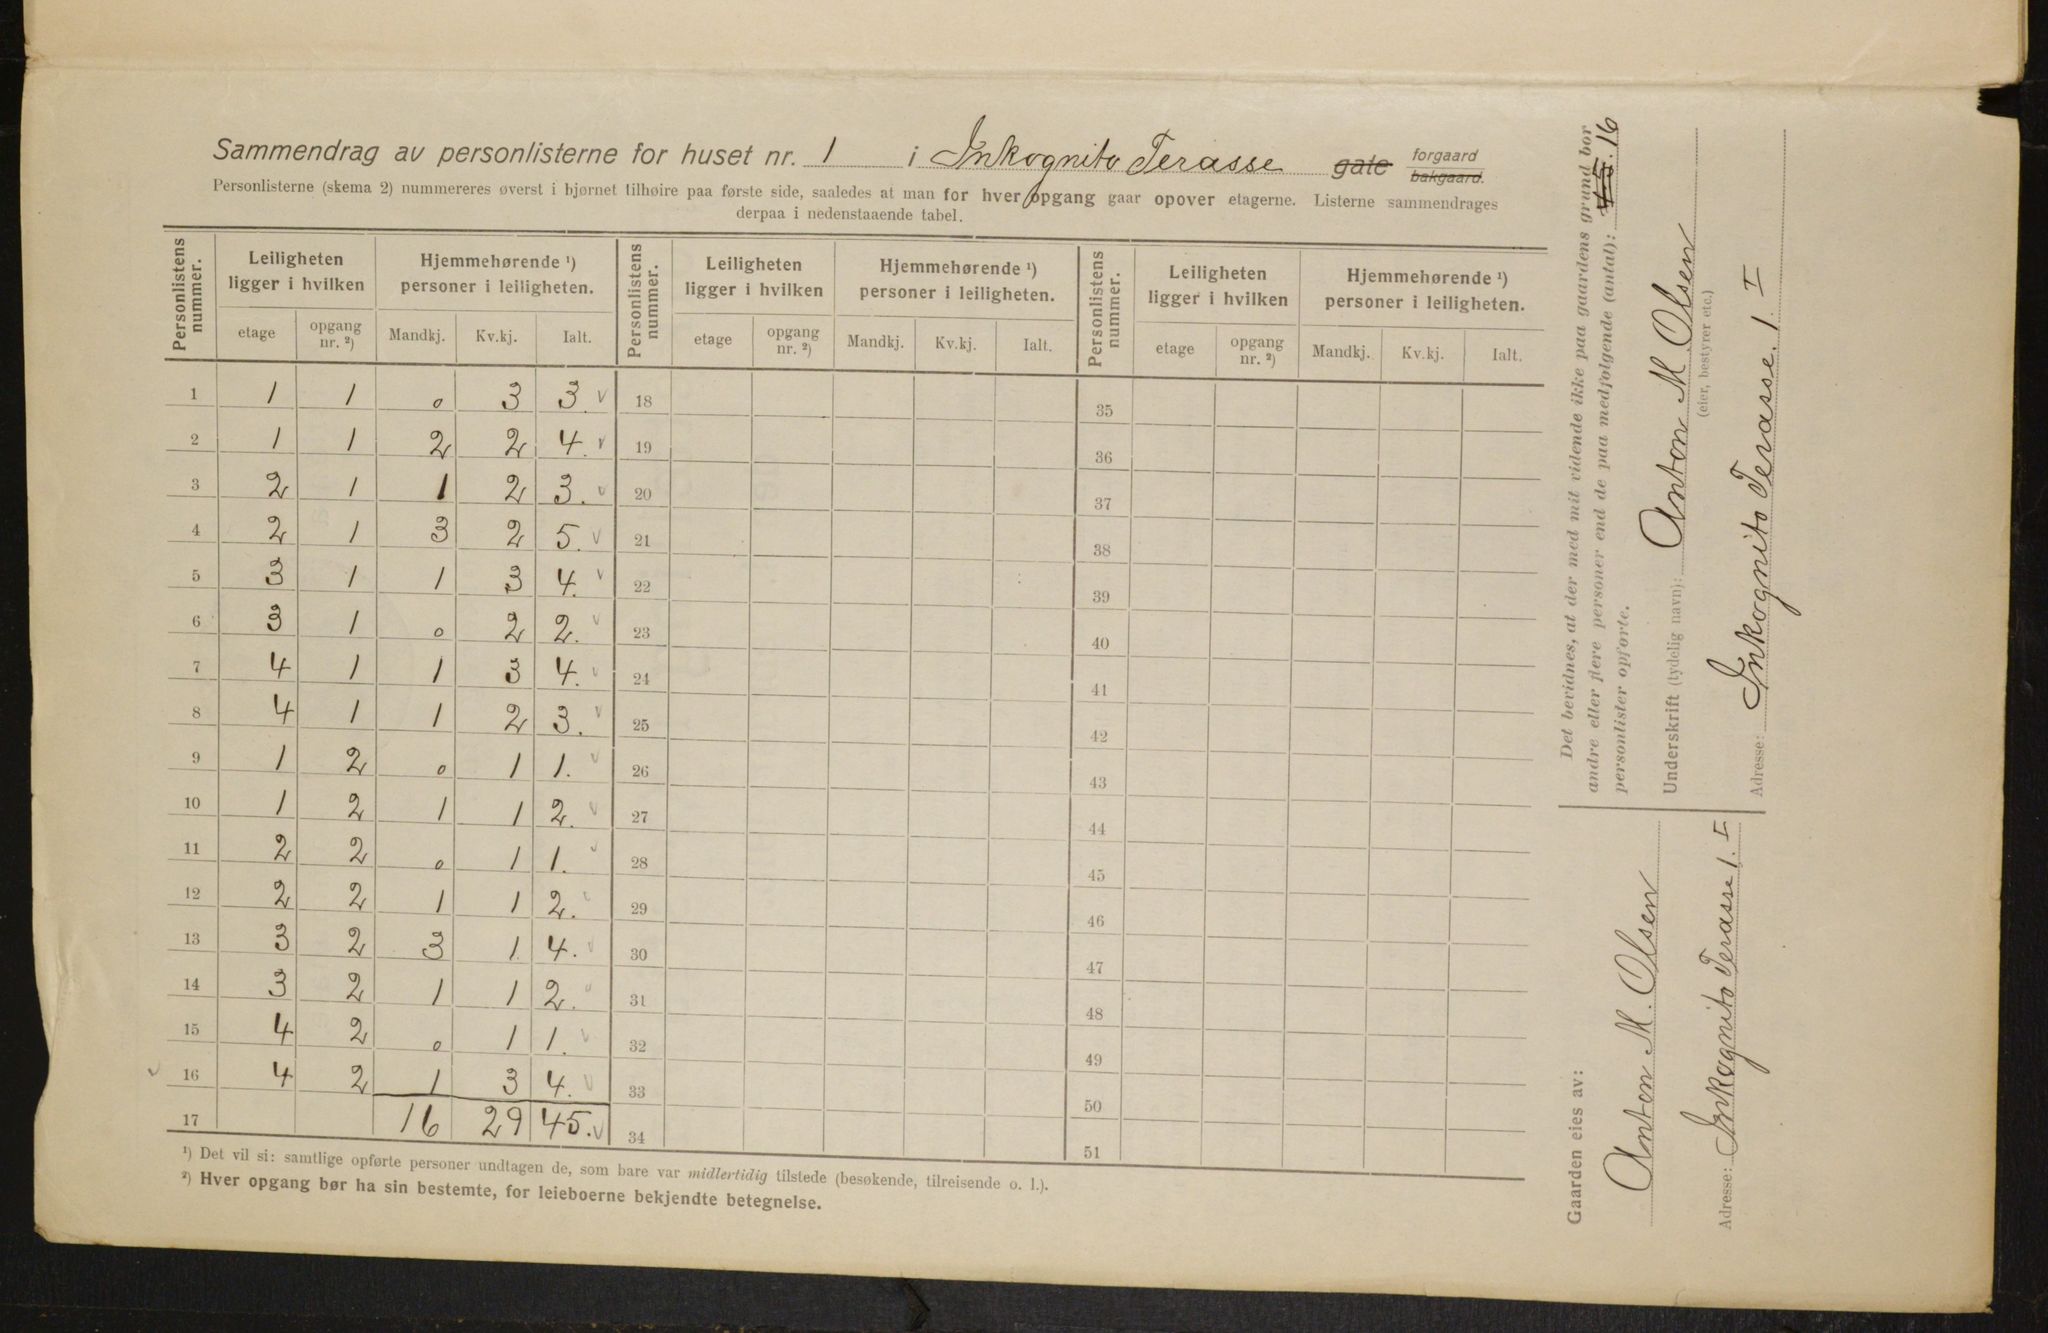 Sammendrag av personlisterne for huset nr. 1 i Inkognito Terasse gate forgaard bakgaard.
Personlisterne (skema 2) nummereres øverst i hjørnet tilhøire paa første side, saaledes at man for hver opgang gaar opover etagerne. Listerne sammendrages
derpaa i nedenstaaende tabel.
Personlistens nummer. Leiligheten ligger i hvilken Hjemmehørende ¹) personer i leiligheten. Personlistens nummer. Leiligheten ligger i hvilken Hjemmehørende ¹) personer i leiligheten. Personlistens nummer. Leiligheten ligger i hvilken Hjemmehørende ¹) personer i leiligheten.
etage opgang nr. ²) Mandkj. Kv.kj. Ialt. etage opgang nr. ²) Mandkj. Kv.kj. Ialt. etage opgang nr. ²) Mandkj. Kv.kj. Ialt.
1 1 1 0 3 3. 18 35
2 1 1 2 2 4. 19 36
3 2 1 1 2 3. 20 37
4 2 1 3 2 5. 21 38
5 3 1 1 3 4. 22 39
6 3 1 0 2 2. 23 40
7 4 1 1 3 4. 24 41
8 4 1 1 2 3. 25 42
9 1 2 0 1 1. 26 43
10 1 2 1 1 2. 27 44
11 2 2 0 1 1. 28 45
12 2 2 1 1 2. 29 46
13 3 2 3 1 4. 30 47
14 3 2 1 1 2. 31 48
15 4 2 0 1 1. 32 49
16 4 2 1 3 4. 33 50
17 16 29 45. 34 51
¹) Det vil si: samtlige opførte personer undtagen de, som bare var midlertidig tilstede (besøkende, tilreisende o. l.).
²) Hver opgang bør ha sin bestemte, for leieboerne bekjendte betegnelse.
Det bevidnes, at der med mit vidende ikke paa gaardens grund bor
andre eller flere personer end de paa medfølgende (antal): 45. 16
personlister opførte.
Underskrift (tydelig navn): Anton M. Olsen
(eier, bestyrer etc.)
Adresse: Inkognito Terasse. 1. I
Gaarden eies av:
Anton M. Olsen
Adresse: Inkognito Terasse 1. I